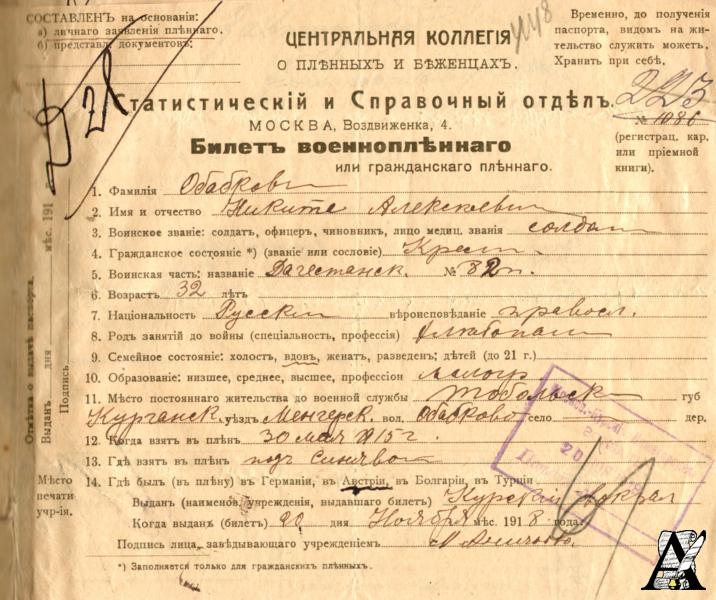 СОСТАВЛЕН на основаніи:
а) личного заявленія плѣнного.
б) представл. документовъ:
ЦЕНТРАЛЬНАЯ КОЛЛЕГІЯ
О ПЛѢННЫХЪ И БѢЖЕНЦАХЪ.
Временно, до полученія
паспорта, видомъ на жи-
тельство служить можетъ.
Хранить при себѣ.
Статистическій и Справочный отдѣлъ.
223
№ 1086
МОСКВА, Воздвиженка, 4.
(регистрац. кар.
или пріемной
книги).
Билетъ военноплѣннаго
или гражданскаго плѣннаго.
1. Фамилія Обабков
2. Имя и отчество Никита Алексеевич
3. Воинское званіе: солдатъ, офицеръ, чиновникъ, лицо медиц. званія солдат
4. Гражданское состояніе *) (званіе или сословіе) Крест.
5. Воинская часть: названіе Дагестанск. № 82 п.
6. Возрастъ 32 лѣтъ
7. Національность Русский вѣроисповѣданіе правосл.
8. Родъ занятій до войны (спеціальность, профессія) хлебопаш
9. Семейное состояніе: холостъ, вдовъ, женатъ, разведенъ; дѣтей (до 21 г.)
10. Образованіе: низшее, среднее, высшее, профессіон малогр
11. Мѣсто постояннаго жительства до военной службы Тобольск губ
Курганск. уѣздъ Менгерск. вол. Обабково село дер.
12. Когда взятъ въ плѣнъ 30 мая 1915 г.
13. Гдѣ взятъ въ плѣнъ под
14. Гдѣ былъ (въ плѣну) въ Германіи, въ Австріи, въ Болгаріи, въ Турціи
Выданъ (наименов. учрежденія, выдавшаго билетъ) Курский вокзал
Когда выданъ (билетъ) 20 дня Ноября мѣс. 1918 года.
Подпись лица, завѣдывающаго учрежденіемъ
*) Заполняется только для гражданскихъ плѣнныхъ.
Отмѣтка о выдачѣ паспорта.
Выданъ дня мѣс. 191 г.
Подпись
Мѣсто
печати
учр-ія.